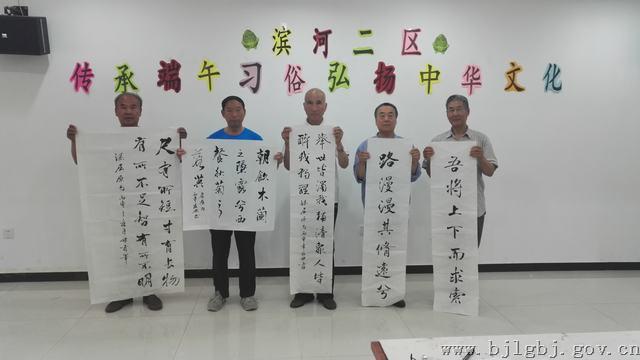 滨河二区
传承端午习俗弘扬中华文化
尺有所短寸有长物
有所不足智有所不明
朝飲木蘭
之墜露兮夕
餐秋菊之
落英
舉世皆濁我獨清衆人皆
醉我獨醒
路漫漫其脩遠兮
吾将上下而求索
www.bjlgbj.gov.cn